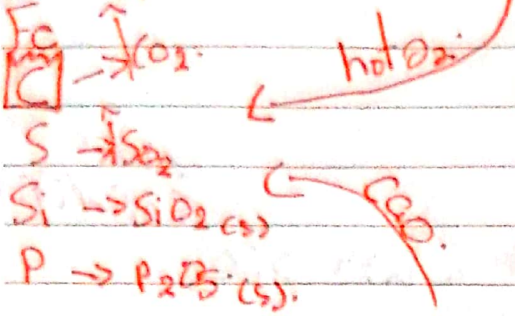 Fe
C → CO2.
hot O2.
S → SO2
Si → SiO2 (s)
CaO.
P → P2O5 (s).